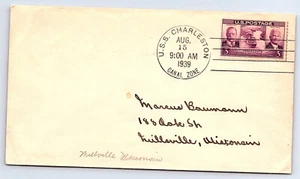 U.S.S. CHARLESTON
AUG.
15
9:00 AM
1939
CANAL ZONE
U.S. POSTAGE
3
3
Marcus Baumann
183 Oak St
Millville, Wisconsin
Millville Wisconsin